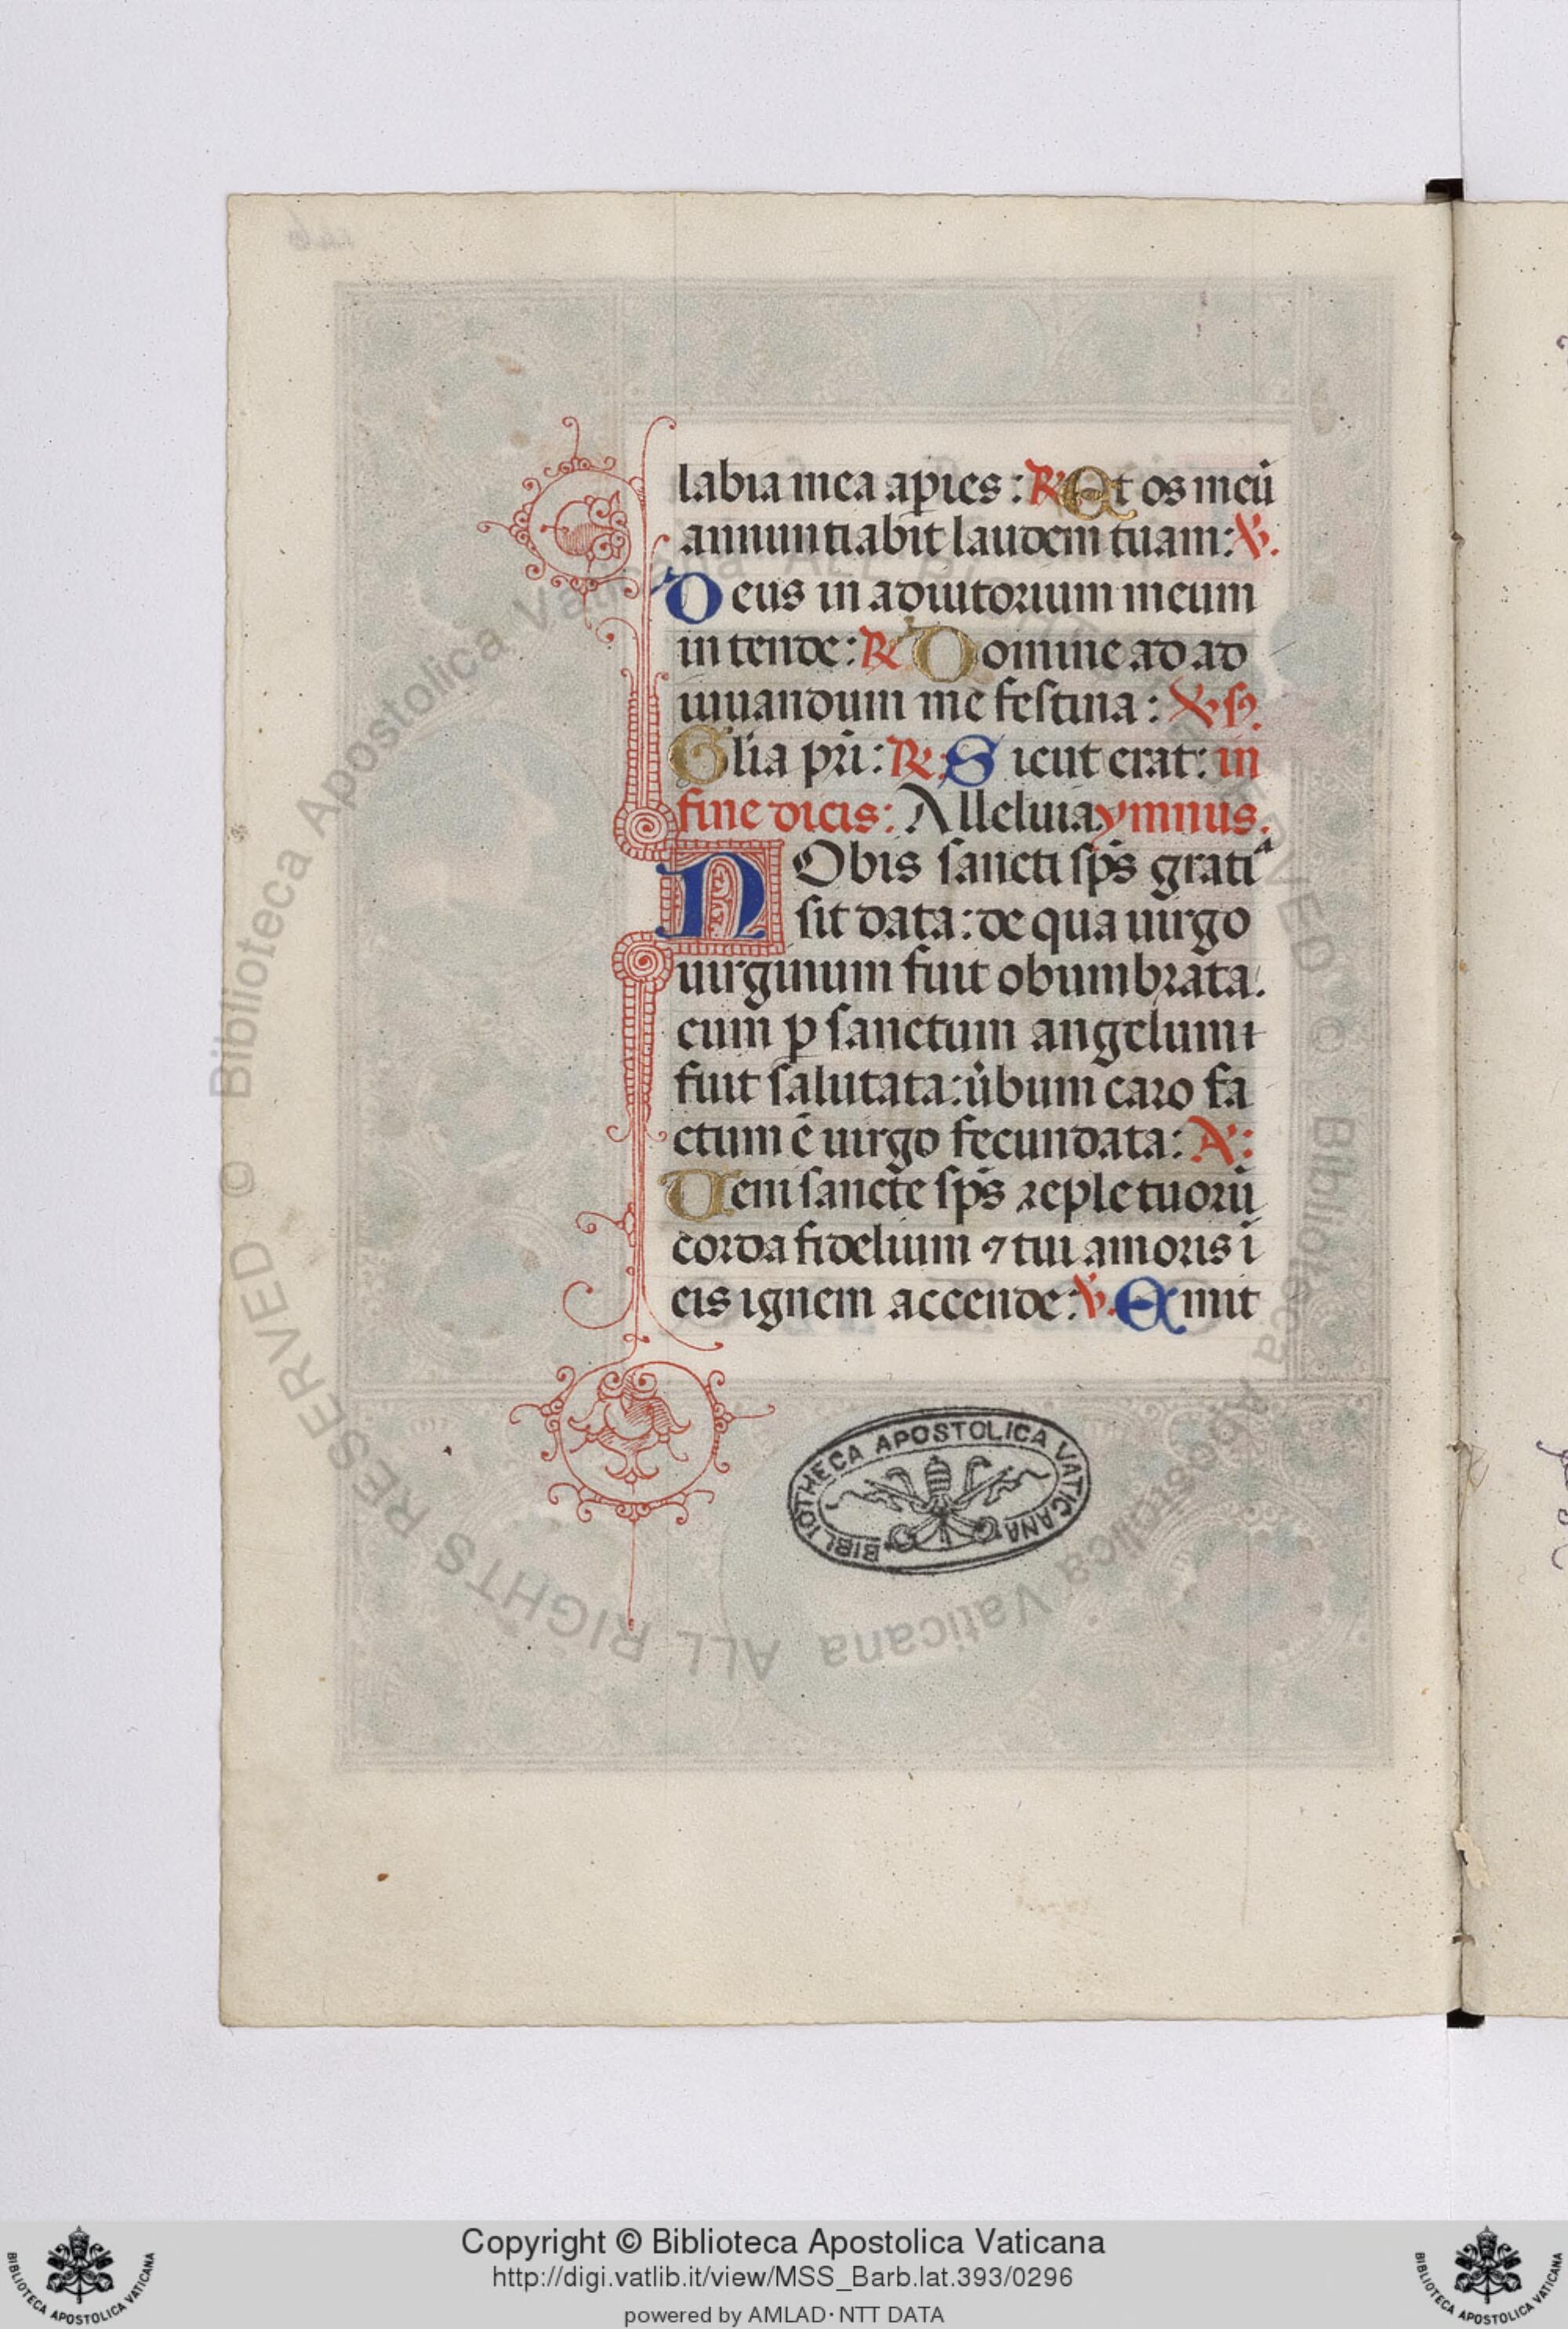 labia mea aꝑies : ℟ Et os meū
annuntiabit laudem tuam: ℣.
Deus in adiutorium meum
in tende: ℟ Domine ad ad
iuuandum me festina : ℣
Glīa pr̄i: ℟. Sicut erat: in
fine dicis: Alleluia ymnus.
NObis sancti sp̄s gratiᵃ
sit data: de qua uirgo
uirginum fuit obumbrata.
cum ꝑ sanctum angelum
fuit salutata: ūbum caro fa
ctum ē uirgo fecundata: A:
Veni sancte sp̄s reple tuorū
corda fidelium ⁊ tui amoris ī
eis ignem accende: ℣. Emit
BIBLIOTHECA APOSTOLICA VATICANA
© Biblioteca Apostolica Vaticana ALL RIGHTS RESERVED
© Biblioteca Apostolica Vaticana ALL RIGHTS RESERVED
Copyright © Biblioteca Apostolica Vaticana
http://digi.vatlib.it/view/MSS_Barb.lat.393/0296
powered by AMLAD·NTT DATA
BIBLIOTECA APOSTOLICA VATICANA
BIBLIOTECA APOSTOLICA VATICANA